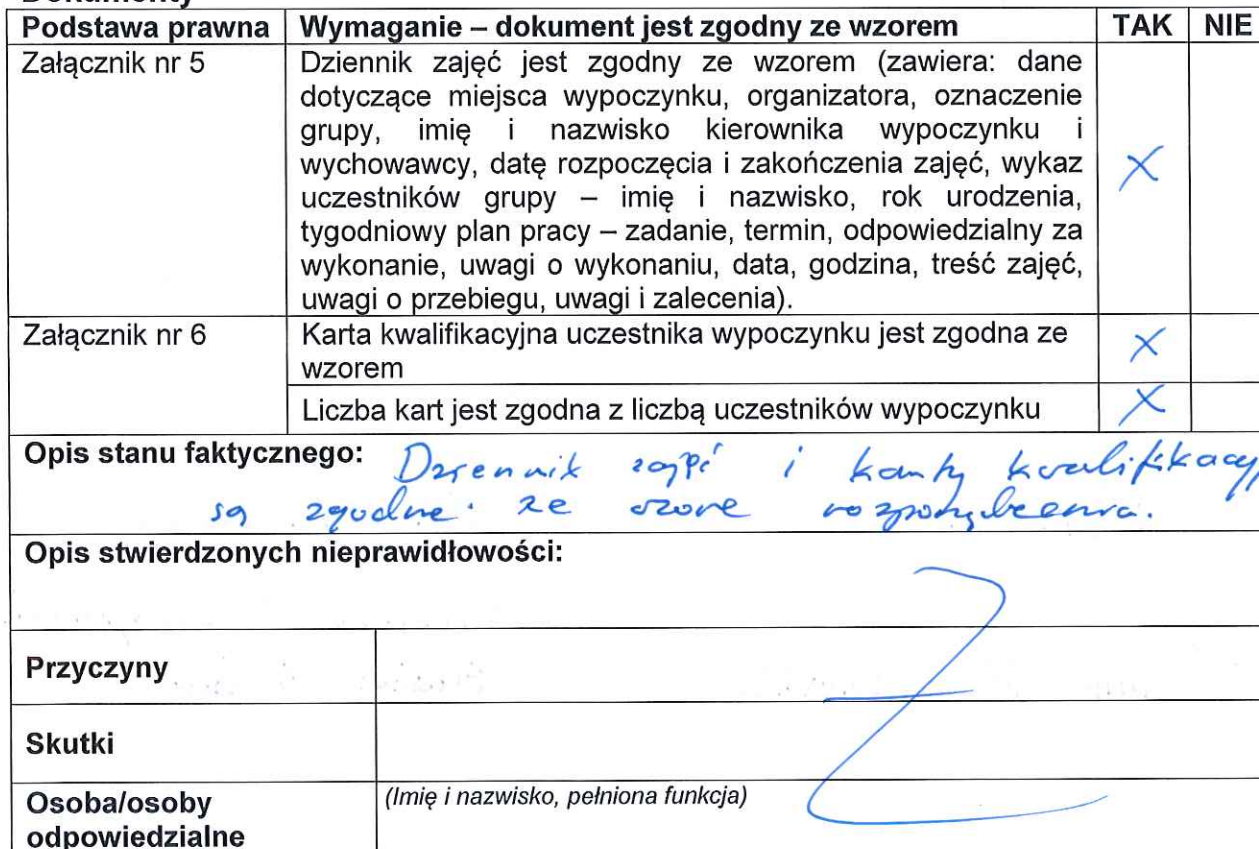 Dokumenty
Podstawa prawna Wymaganie – dokument jest zgodny ze wzorem TAK NIE
Załącznik nr 5 Dziennik zajęć jest zgodny ze wzorem (zawiera: dane
dotyczące miejsca wypoczynku, organizatora, oznaczenie
grupy, imię i nazwisko kierownika wypoczynku i
wychowawcy, datę rozpoczęcia i zakończenia zajęć, wykaz
uczestników grupy – imię i nazwisko, rok urodzenia,
tygodniowy plan pracy – zadanie, termin, odpowiedzialny za
wykonanie, uwagi o wykonaniu, data, godzina, treść zajęć,
uwagi o przebiegu, uwagi i zalecenia).
X
Załącznik nr 6 Karta kwalifikacyjna uczestnika wypoczynku jest zgodna ze
wzorem
X
Liczba kart jest zgodna z liczbą uczestników wypoczynku X
Opis stanu faktycznego: Dziennik zajęć i karty kwalifikacyj
są zgodne ze
Opis stwierdzonych nieprawidłowości:
Przyczyny
Skutki
Osoba/osoby (Imię i nazwisko, pełniona funkcja)
odpowiedzialne